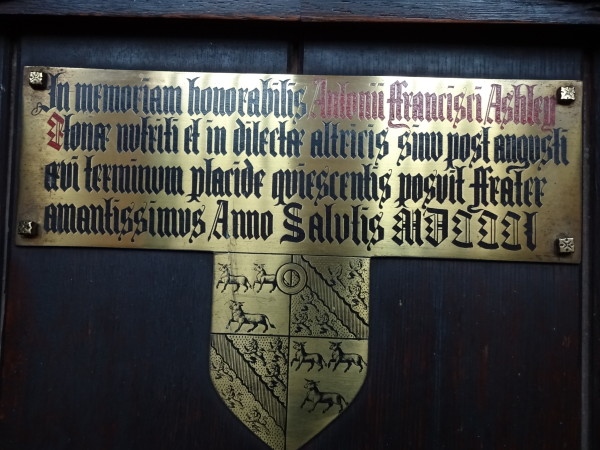 In memoriam honorabilis Antonii Francisci Ashley
Ilonæ nutriti et in dilectæ altricis sinu post angusti
ævi terminum placide quiescentis posuit Frater
amantissimus Anno Salutis MDCCCCI